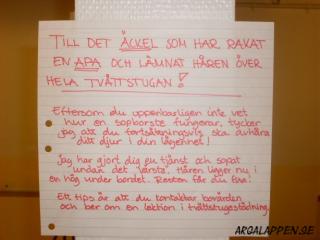 TILL DET ÄCKEL SOM HAR RAKAT
EN APA OCH LÄMNAT HÅREN ÖVER
HELA TVÄTTSTUGAN!
Eftersom du uppenbarligen inte vet
hur en sopborste fungerar, tycker
jag att du fortsättningsvis ska avhåra
ditt djur i din lägenhet!
Jag har gjort dig en tjänst och sopat
undan det värsta. Håren ligger nu i
en hög under bordet. Resten får du fixa!
Ett tips är att du kontaktar borården
och ber om en lektion i tvättstugestädning.
ARGALAPPEN.SE